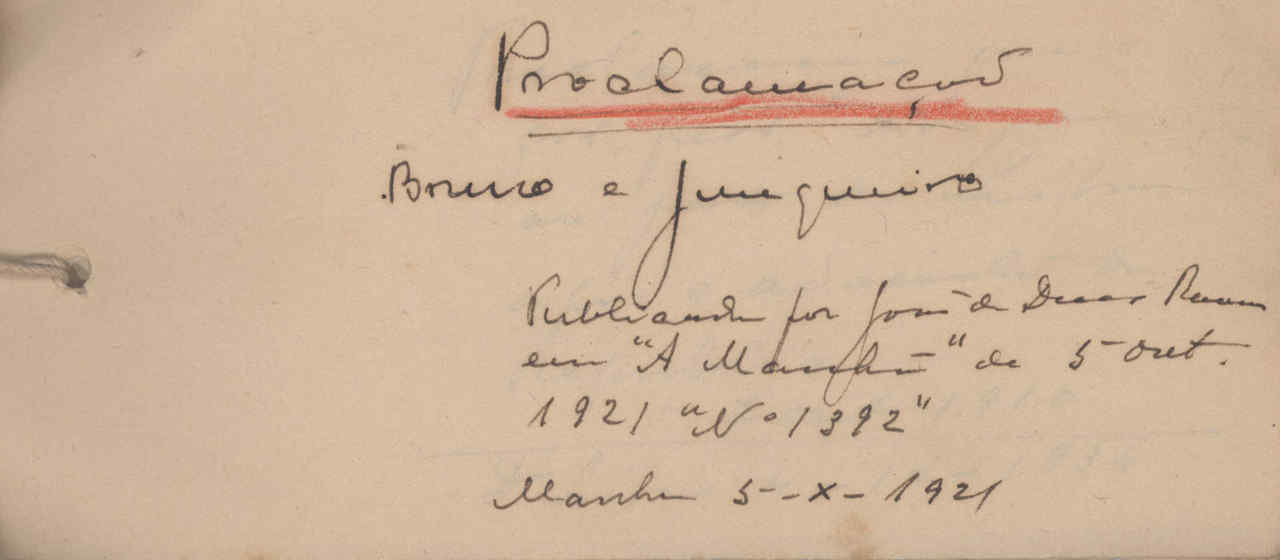 Proclamação
Bruno e Junqueiro
Publicando por João de Deus Ramos
em "A Manhã" de 5 Out.
1921 "Nº 1392"
Manhã 5-X-1921